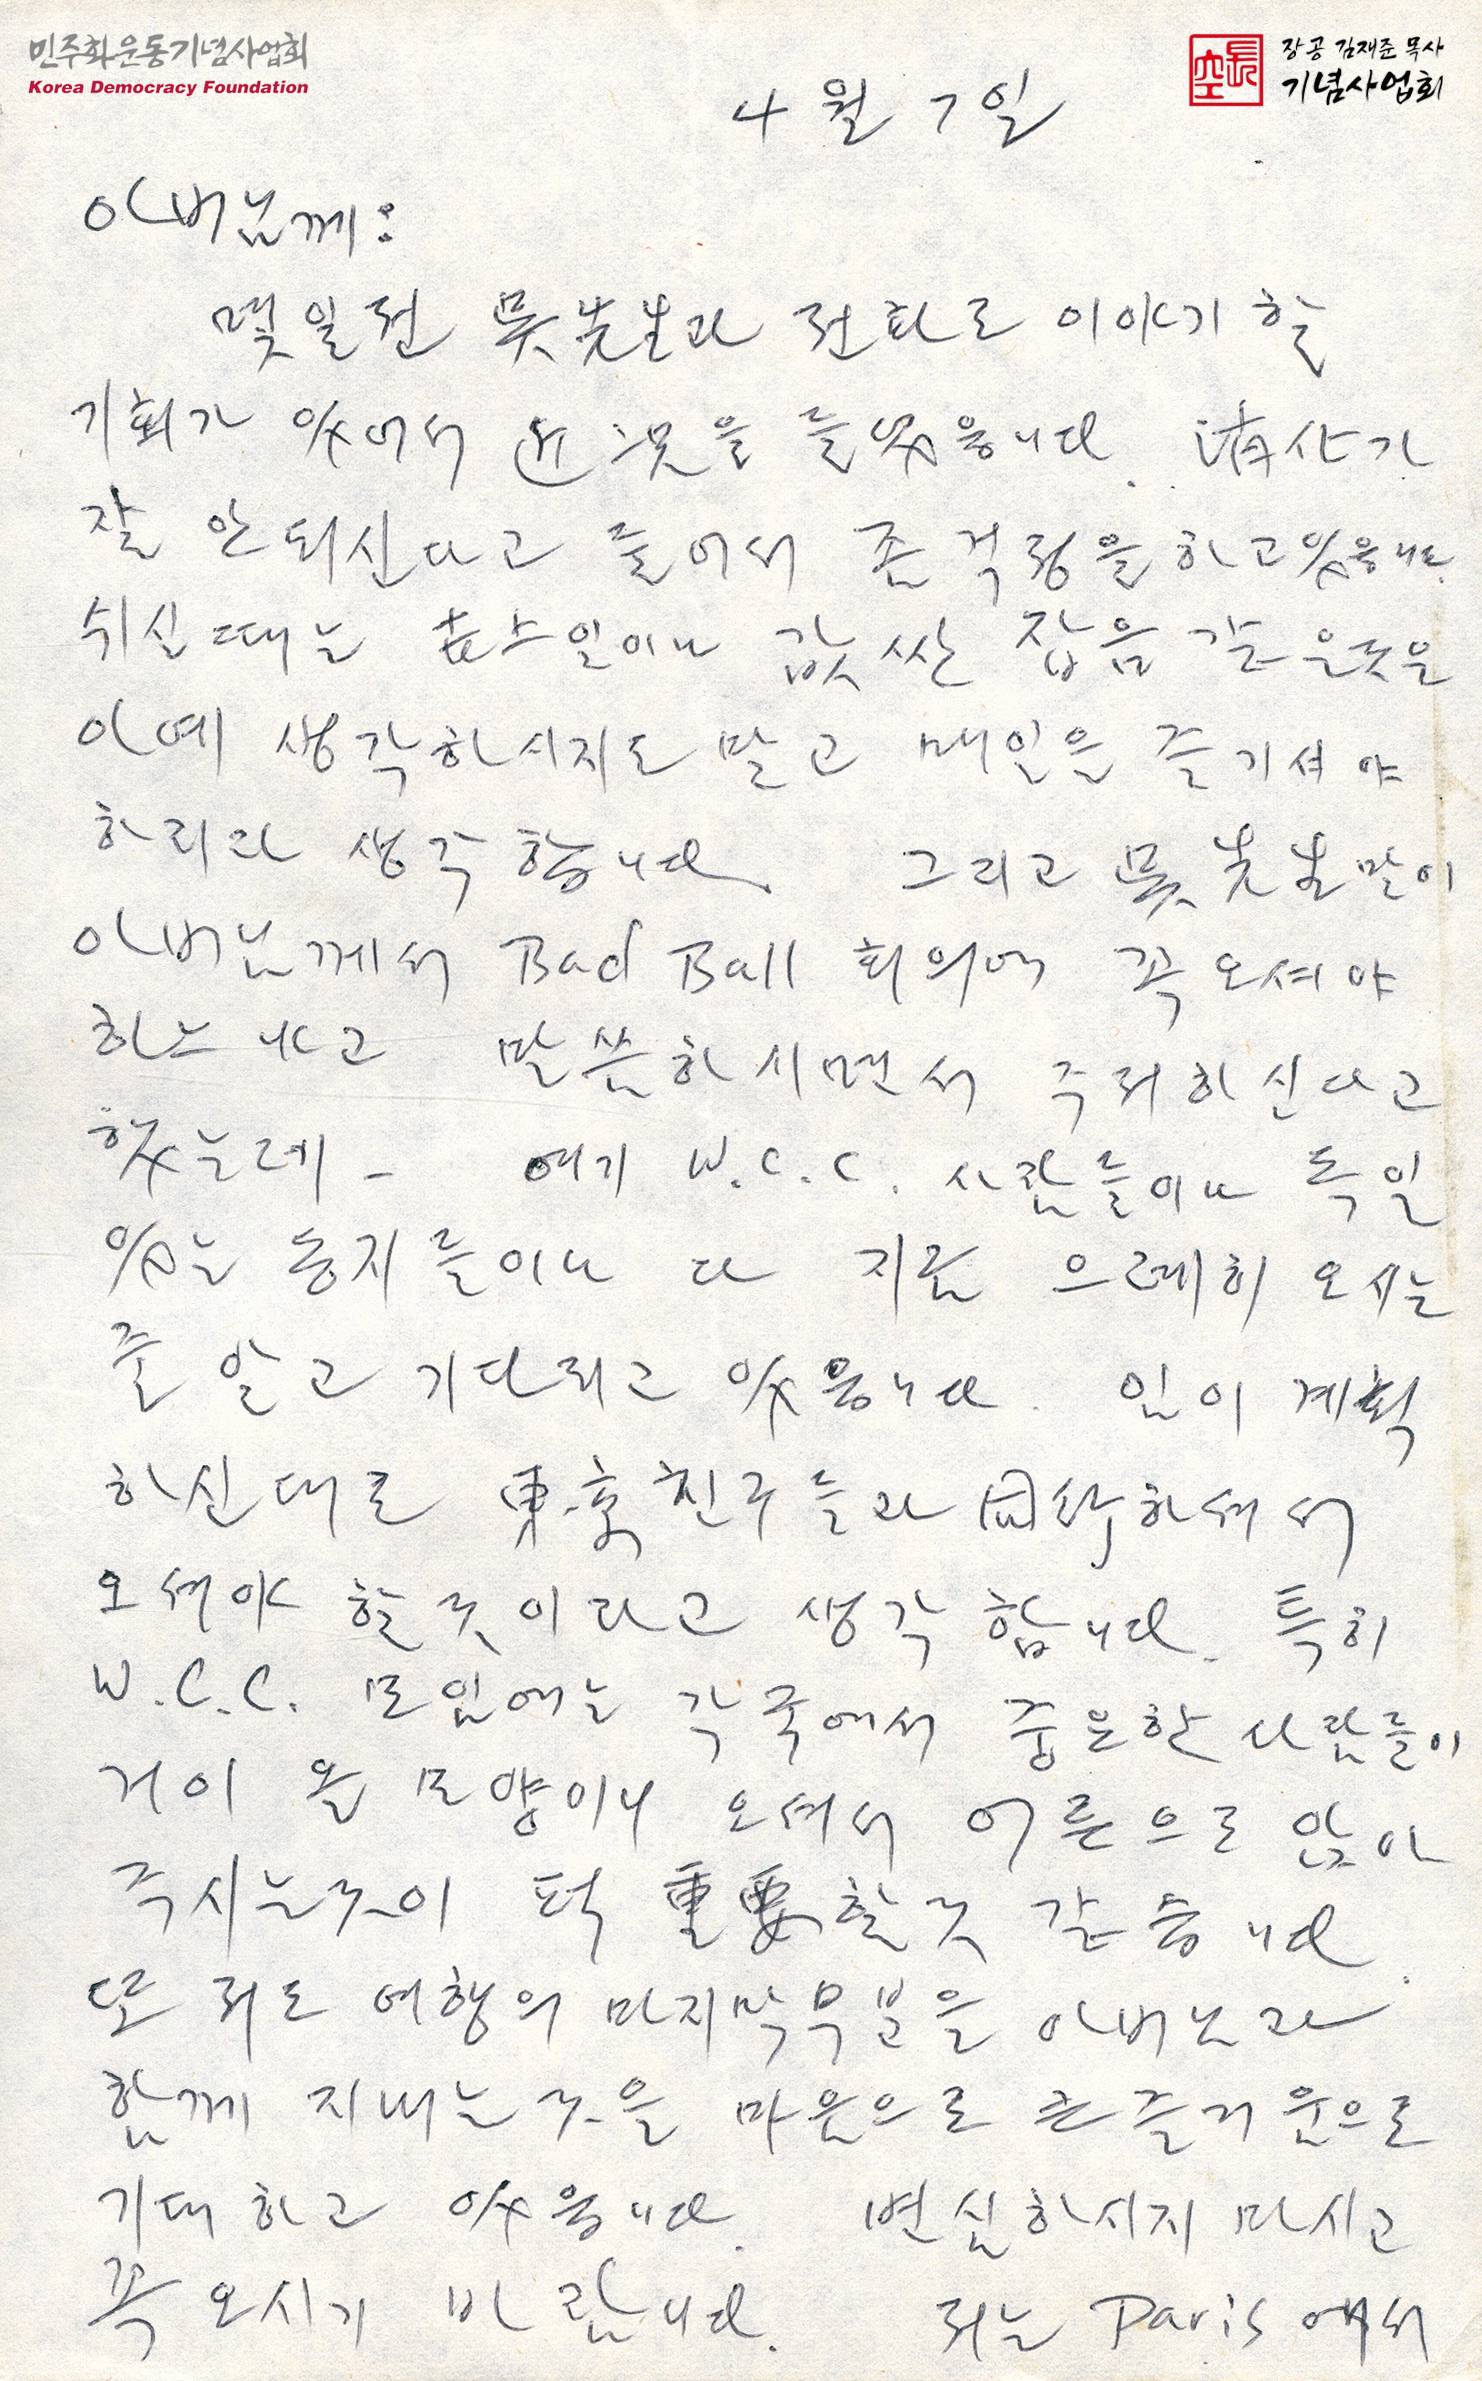 민주화운동기념사업회
Korea Democracy Foundation
장공 김재준 목사
기념사업회
4월 7일
아버님께:
몇일전 吳先生과 전화로 이야기 할
기회가 있어서 近況을 들었읍니다. 消化가
잘 안되신다고 들어서 좀 걱정을 하고있읍니다.
쉬실때는 장난일이나 값싼 잡음 같은것은
아예 생각하시지도 말고 매일을 즐기셔야
하리라 생각합니다. 그리고 吳先生말이
아버님께서 Bad Ball 회의에 꼭 오셔야
하느냐고 말씀하시면서 주저하신다고
했는데 - 여기 W.C.C. 사람들이나 독일
있는 동지들이나 다 지금 으레히 오시는
줄 알고 기다리고 있읍니다. 임이 계획
하신대로 東京친구들과 同行하셔서
오셔야 할것이라고 생각합니다. 특히
W.C.C. 모임에는 각국에서 중요한 사람들이
거이 올 모양이니 오셔서 어른으로 앉아
주시는것이 퍽 重要할것 같습니다.
또 저도 여행의 마지막부분을 아버님과
함께 지내는것을 마음으로 큰 즐거움으로
기대하고 있읍니다. 변심하시지 마시고
꼭 오시기 바랍니다. 저는 Paris에서